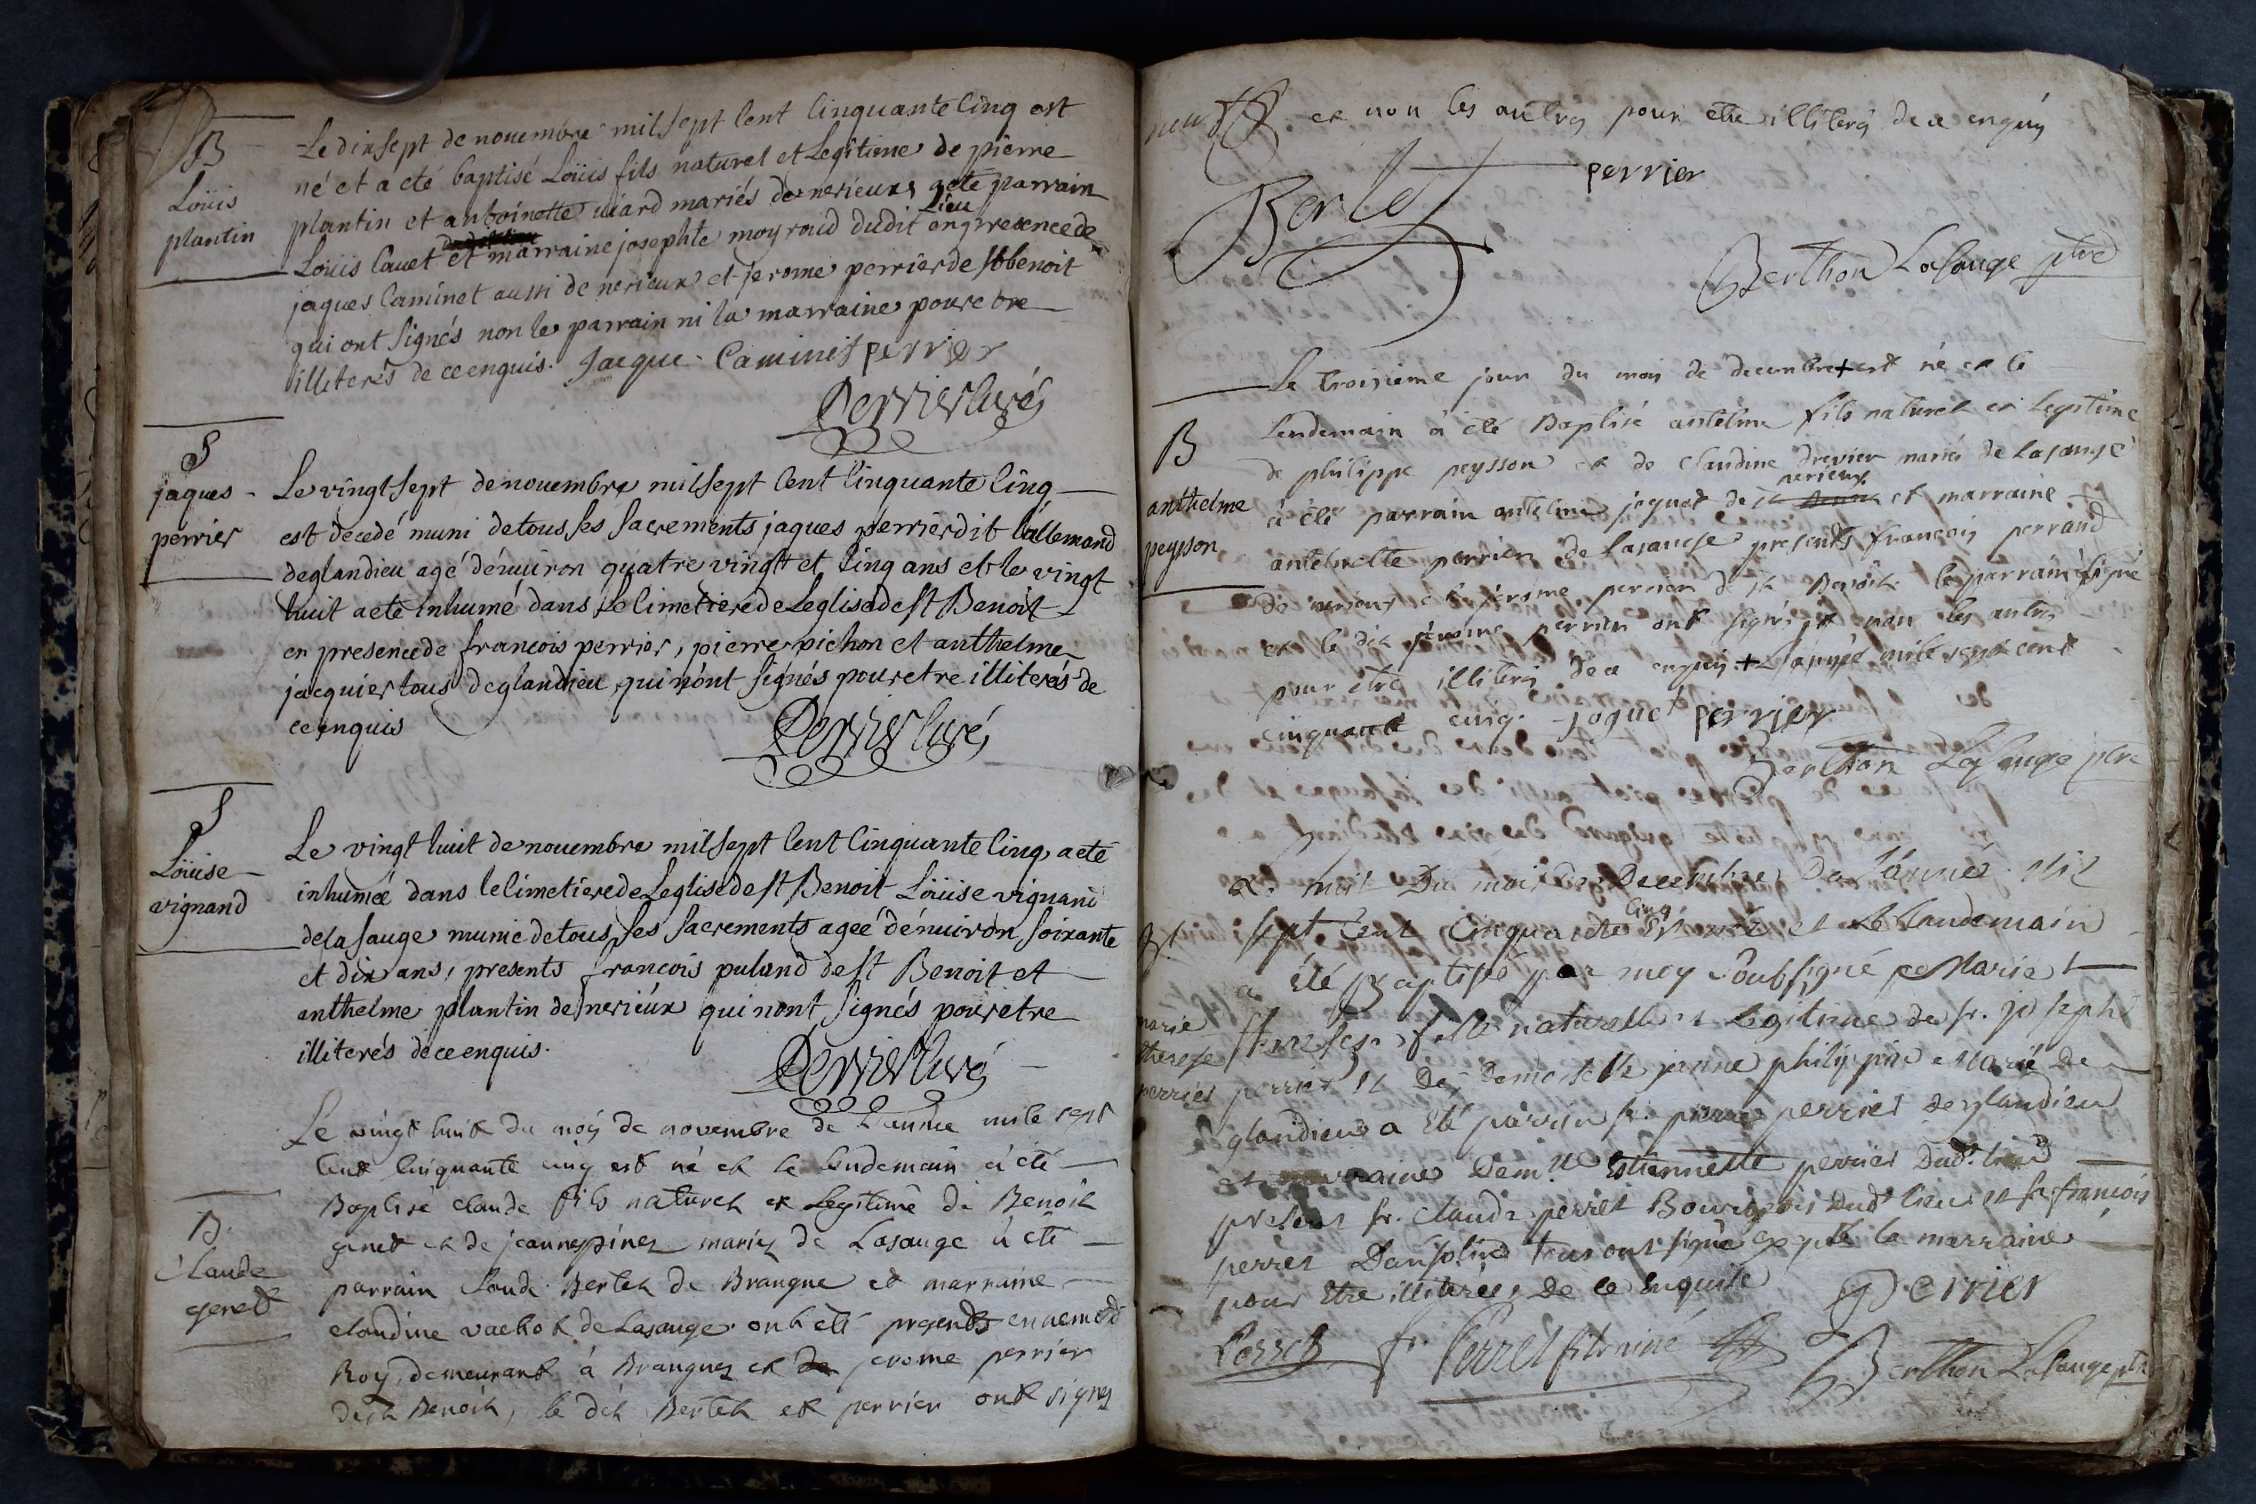 B
Loüis
plantin
Le dixsept de nouembre milsept Cent Cinquante Cinq est
né et a eté baptisé Loüis fils naturel et Legitime de pierre
plantin et antoinette uiard mariés de nerieux a eté parrain
Loüis Cauet et marraine josephte moyroud dudit Lieu en presence de
jaques Caminet aussi de nerieux et jerome perrier de st benoit
qui ont signés non le parrain ni la marraine pour etre
illiterés de ce enquis. Jacque Caminet perrier
Perrier Curé
S
jaques
perrier
Le vingt sept de nouembre milsept Cent Cinquante Cinq
est decedé muni de tous ses sacrements jaques perrier dit l'allemand
de glandieu agé dénuiron quatre vingt et Cinq ans et le vingt
huit a eté inhumé dans Le Cimetiere de Leglise de st Benoit
en presence de francois perrier, pierre pichon et anthelme
jacquier tous de glandieu qui n'ont signés pour etre illiterés de
ce enquis
Perrier Curé
S
Loüise
vignand
Le vingt huit de nouembre milsept Cent Cinquante Cinq a eté
inhumée dans le Cimetiere de Leglise de st Benoit Loüise vignand
de la sauge munie de tous ses sacrements ageé dénuiron soixante
et dix ans, presents francois puland de st Benoit et
anthelme plantin de nerieux qui n'ont signés pour etre
illiterés de ce enquis.
Perrier Curé
B.
Claude
genet
Le vingt huit du moy de novembre de L'année mile sept
Cent Cinquante cinq est né et le lendemain à été
Baptisé claude fils naturel et Legitime de Benoit
genet et de jeanne pinez mariez de Lasauge à été
parrain Claude Bertet de Brangue et marraine
claudine vachot de Lasauge ont été presents ennemond
Roy demeurant à Brangues et jerome perrier
de st Benoit, le dit Bertet et perrier ont signez
et non les autres pour etre illiterés de ce enquis
perrier
Bertet
Berthon Lasauge ptre
B
anthelme
peysson
Le troisieme jour du mois de decembre + est né et le
Lendemain à été Baptisé antelme fils naturel et Legitime
de philippe peysson et de claudine drevier mariés de Lasauge
à été parrain antelme joquet de nerieux et marraine
antelmette perrier de Lasauge presents françois perraud
de nerieux et jerome perrier de st Benoit le parrain à signé
et le dit jerome perrier ont signés et non les autres
pour etre illiterés de ce enquis + L'année mile sept cent
cinquante cinq. joquet perrier
Berthon Lasauge ptre
marie
therese
perrier
Le huit Du mois De Decembre De l'année mil
sept Cent Cinquante Cinq Est née et Le landemain
a Eté Baptisé par moy Soubsigné Marie
therese fille naturelle et Legitime de sr. joseph
perrier et De Demoiselle jeanne philippine Marié De
glandieu a Eté parrin sr. pierre perrier de glandieu
et marraine Demlle Etiennette perrier Dudt lieu
présent sr. Claude perret Bourgeois Dudt lieu et sr. françois
perret tous ont signé la marraine
pour Etre illiterée, De ce Enquise
Perrier
Perret fr. Perret fils ainé
Berthon Lasauge ptre